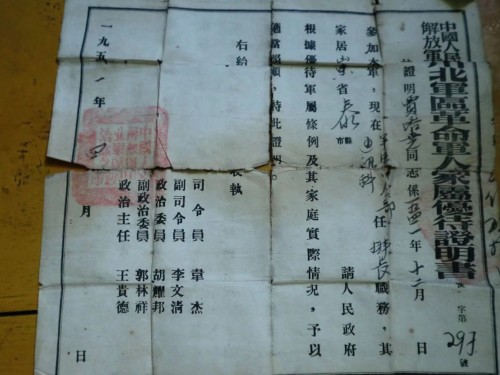 中國人民解放軍川北軍區革命軍人家屬優待證明書
字第293號
證明同志係一九四一年十二月 日
參加本軍，現在通訊科任長職務，其
家居省市縣請人民政府
根據優待軍屬條例及其家庭實際情況，予以
適當照顧，特此證明。
右給 執
司令員 韋杰
副司令員 李文清
政治委員 胡耀邦
副政治委員 郭林祥
政治主任 王貴德
一九五一年四月 日